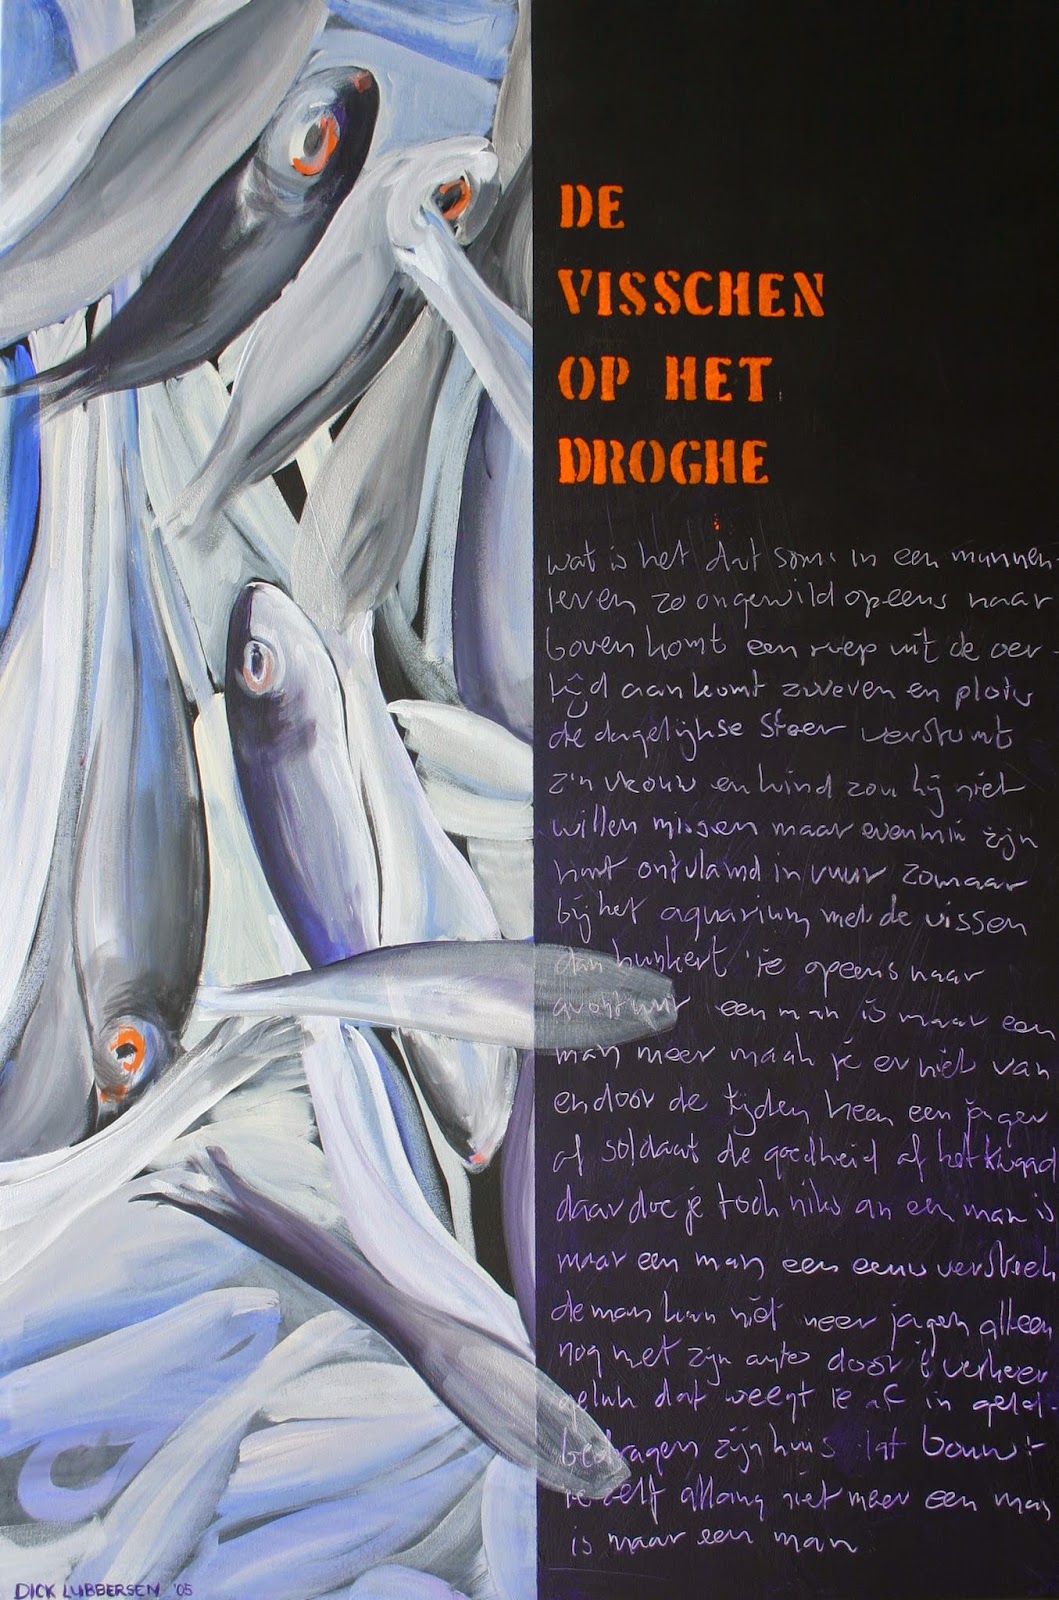 DE
VISSCHEN
OP HET
DROGHE
wat is het dat soms in een mannen-
leven zo ongewild opeens naar
boven komt een roep uit de oer-
tijd aan komt zweven en plots
de dagelijkse sfeer verstomt
z'n vrouw en kind zou hij niet
willen missen maar evenmin zijn
hart ontvlamd in vuur zomaar
bij het aquarium met de vissen
dan hunkert ie opeens naar
avontuur een man is maar een
man meer maak je er niet van
en door de tijden heen een jager
of soldaat de goedheid of het kwaad
daar doe je toch niks an een man is
maar een man een eeuw verstreek
de man kan niet meer jagen alleen
nog met zijn auto door 't verkeer
geluk dat weegt ie af in geld-
bedragen zijn huis dat bouwt
ie zelf allang niet meer een man
is maar een man
DICK LUBBERSEN '05